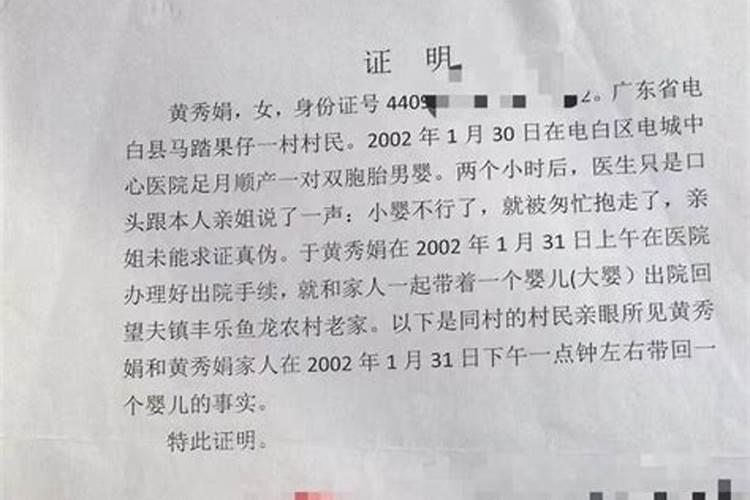 证 明
黄秀娟，女，身份证号 4409 2。广东省电
白县马踏果仔一村村民。2002 年 1 月 30 日在电白区电城中
心医院足月顺产一对双胞胎男婴。两个小时后，医生只是口
头跟本人亲姐说了一声：小婴不行了，就被匆忙抱走了，亲
姐未能求证真伪。于黄秀娟在 2002 年 1 月 31 日上午在医院
办理好出院手续，就和家人一起带着一个婴儿(大婴）出院回
望夫镇丰乐鱼龙农村老家。以下是同村的村民亲眼所见黄秀
娟和黄秀娟家人在 2002 年 1 月 31 日下午一点钟左右带回一
个婴儿的事实。
特此证明。